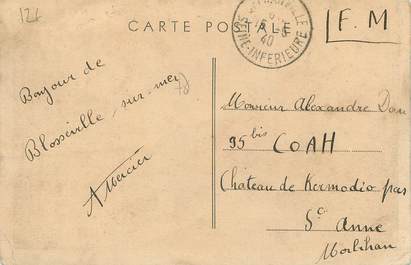 124
CARTE POSTALE
40
INE-INFERIEURE
F. M
Bonjour de
Blosseville-sur-mer
78
A Mercier
Monsieur Alexandre
95 bis COAH
Chateau de Kermadio par
Ste Anne
Morbihan